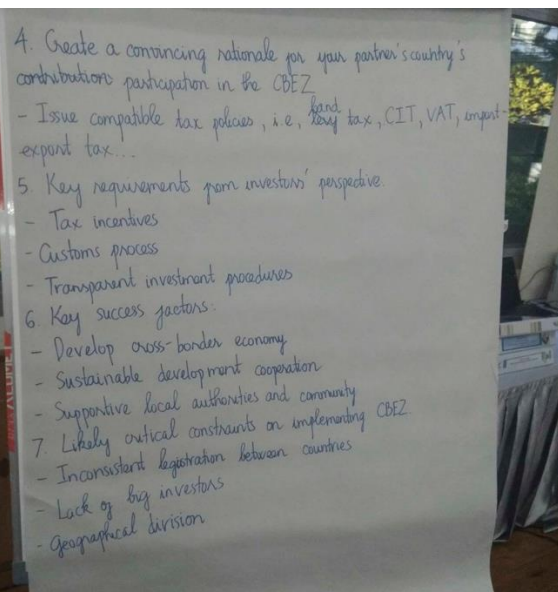 4. Create a convincing rationale for your partner's country's
contribution participation in the CBEZ
- Issue compatible tax policies, i.e, land tax, CIT, VAT, import-
export tax...
5. Key requirements from investors' perspective.
- Tax incentives
- Customs process
- Transparent investment procedures
6. Key success factors:
- Develop cross-border economy
- Sustainable development cooperation
- Supportive local authorities and community
7 Likely critical constraints on implementing CBEZ
- Inconsistent legistration between countries
- Lack of big investors
- Geographical division